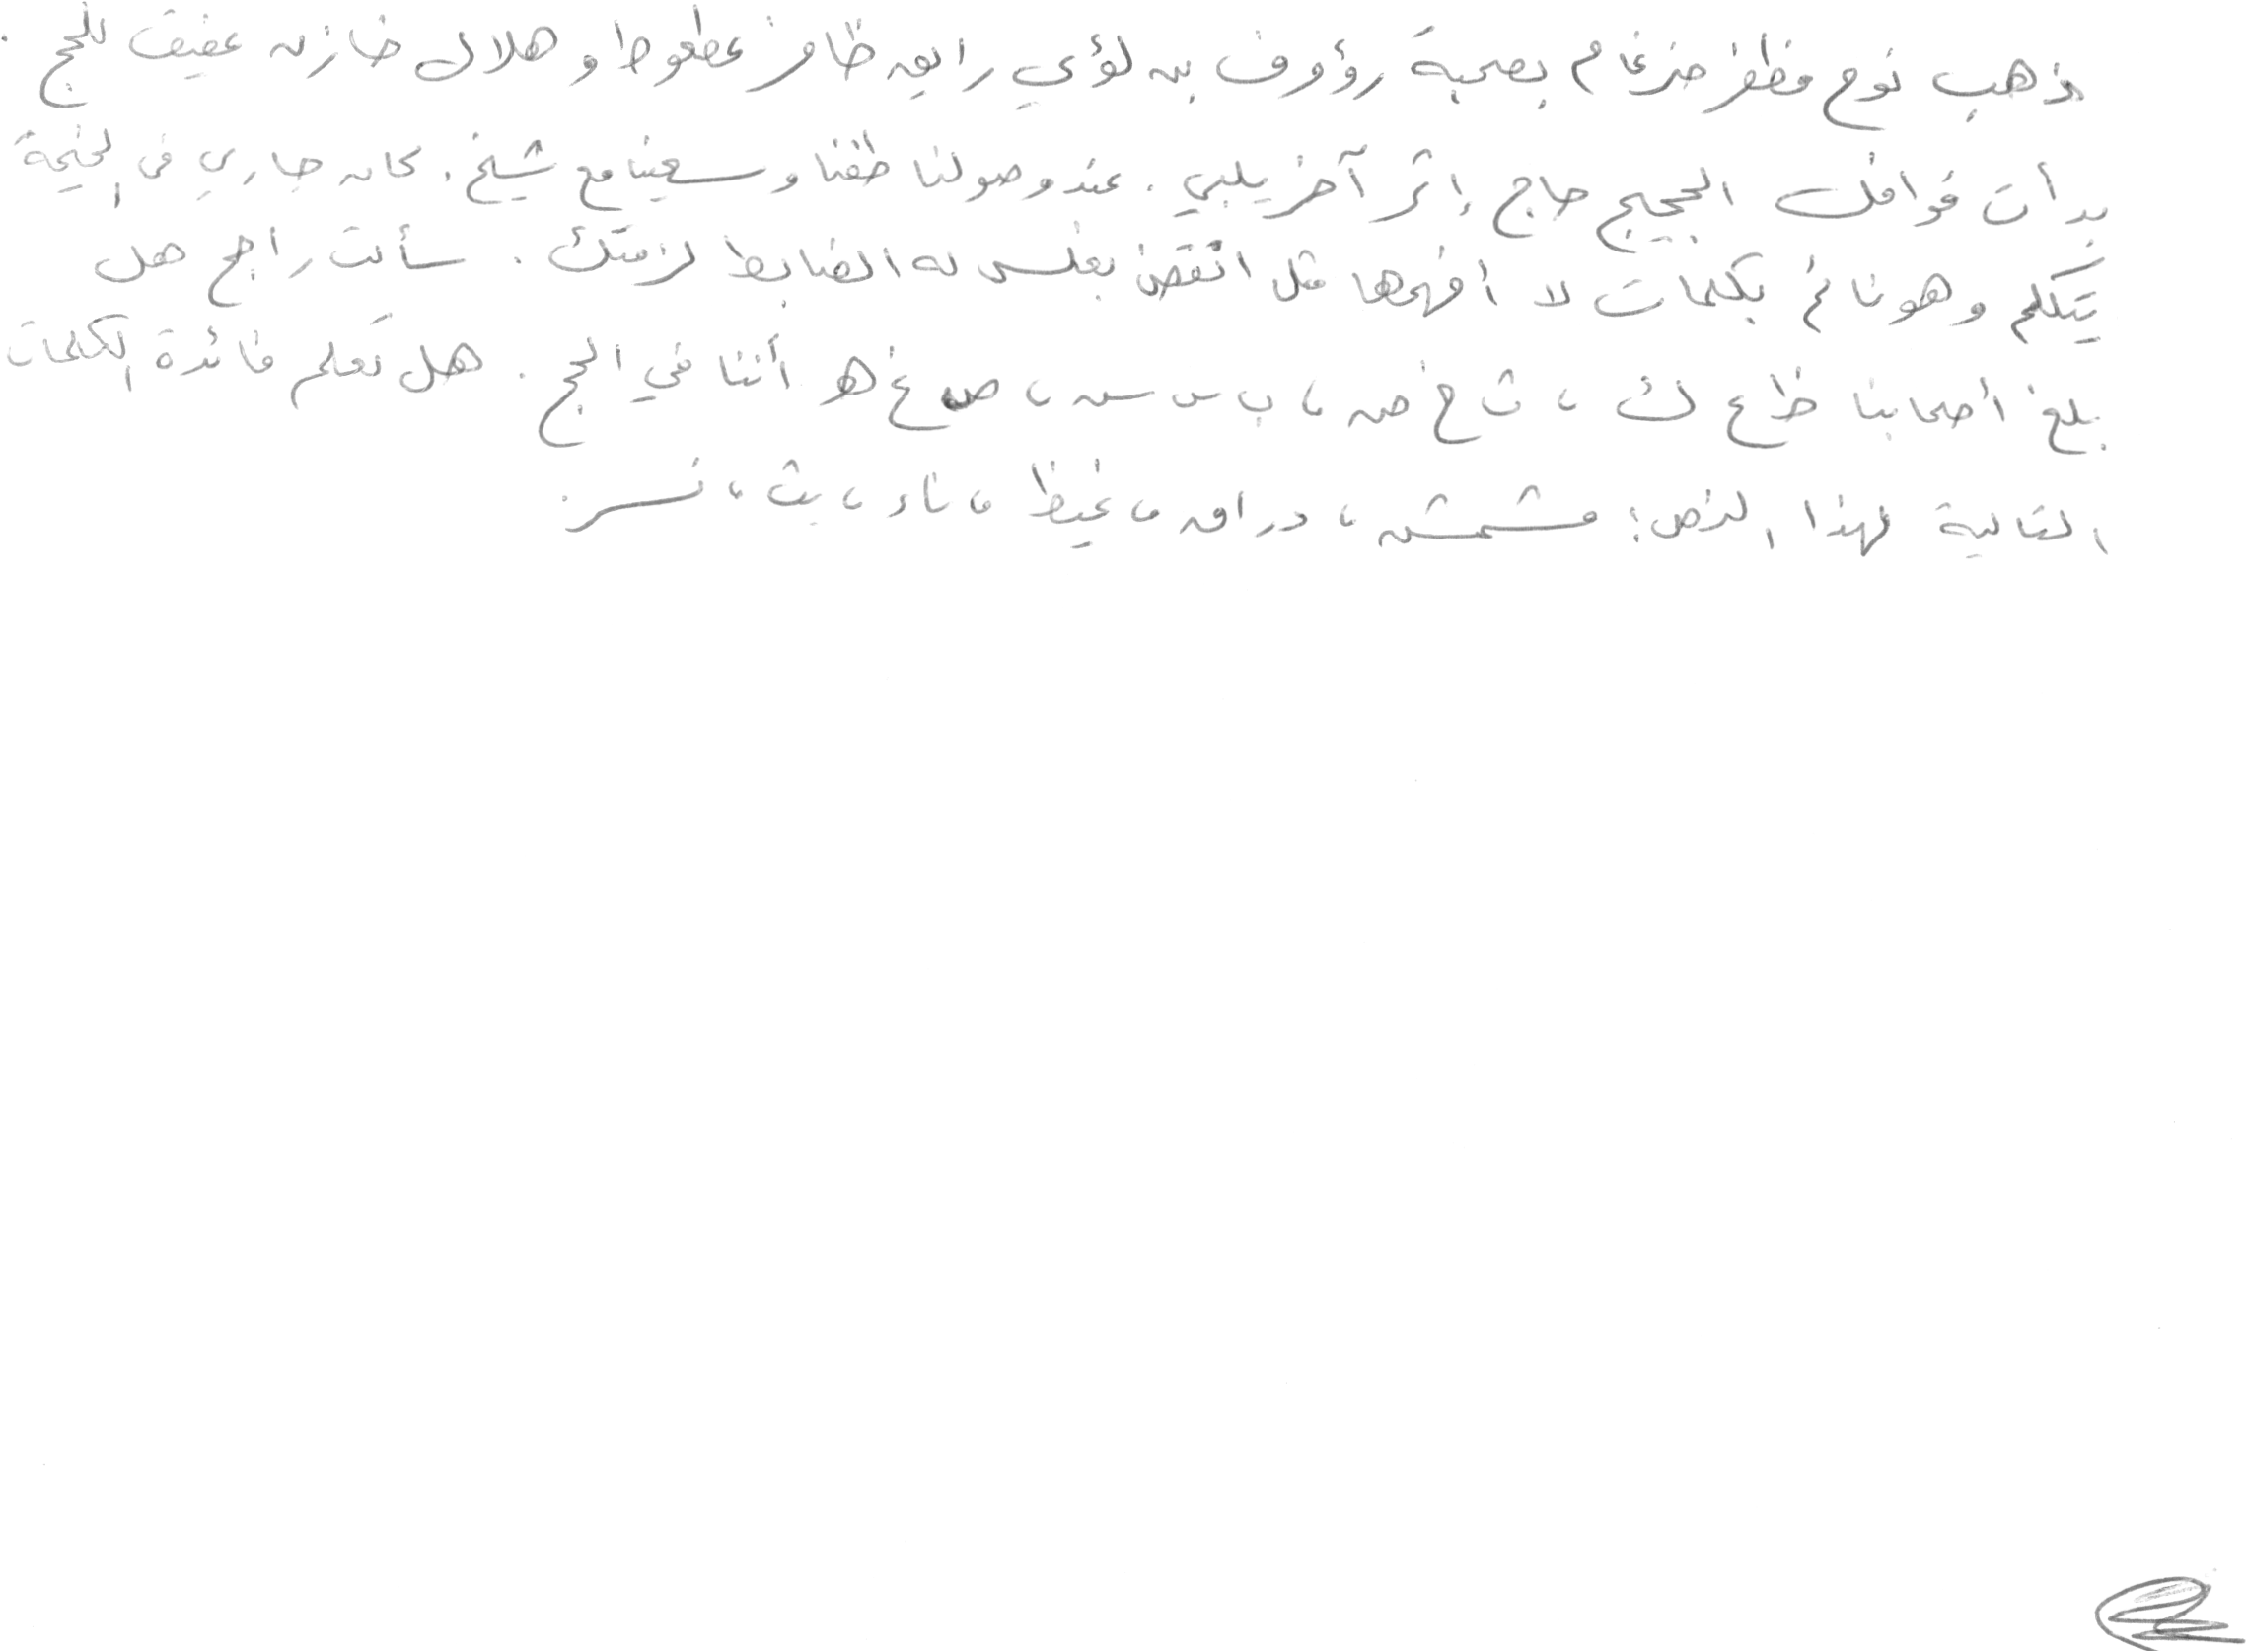 ذهب نوح مظفر ضرغام بصحبة رؤوف بن لؤي رائق ظافر عطعوط و هلال خازن عفيف للحج .
بدأت قوافل الحجيج حاج إثر آخر يلبي . عند وصولنا طفنا وسعينا مع شيخ . كان جاري في الخيمة
يتكلم وهو نائم بكلمات لا أفهمها مثل انقض بغلس له الضابط لزمتك . سألت راجح هل
بلغ أصحابنا ظ ع ك ، ث خ ض ، ب س س ، ص غ هـ أننا في الحج . هل تعلم فائدة الكلمات
التالية لهذا النص : مشمش ، دراق ، غيظ ، ناء ، بث ، نسر .